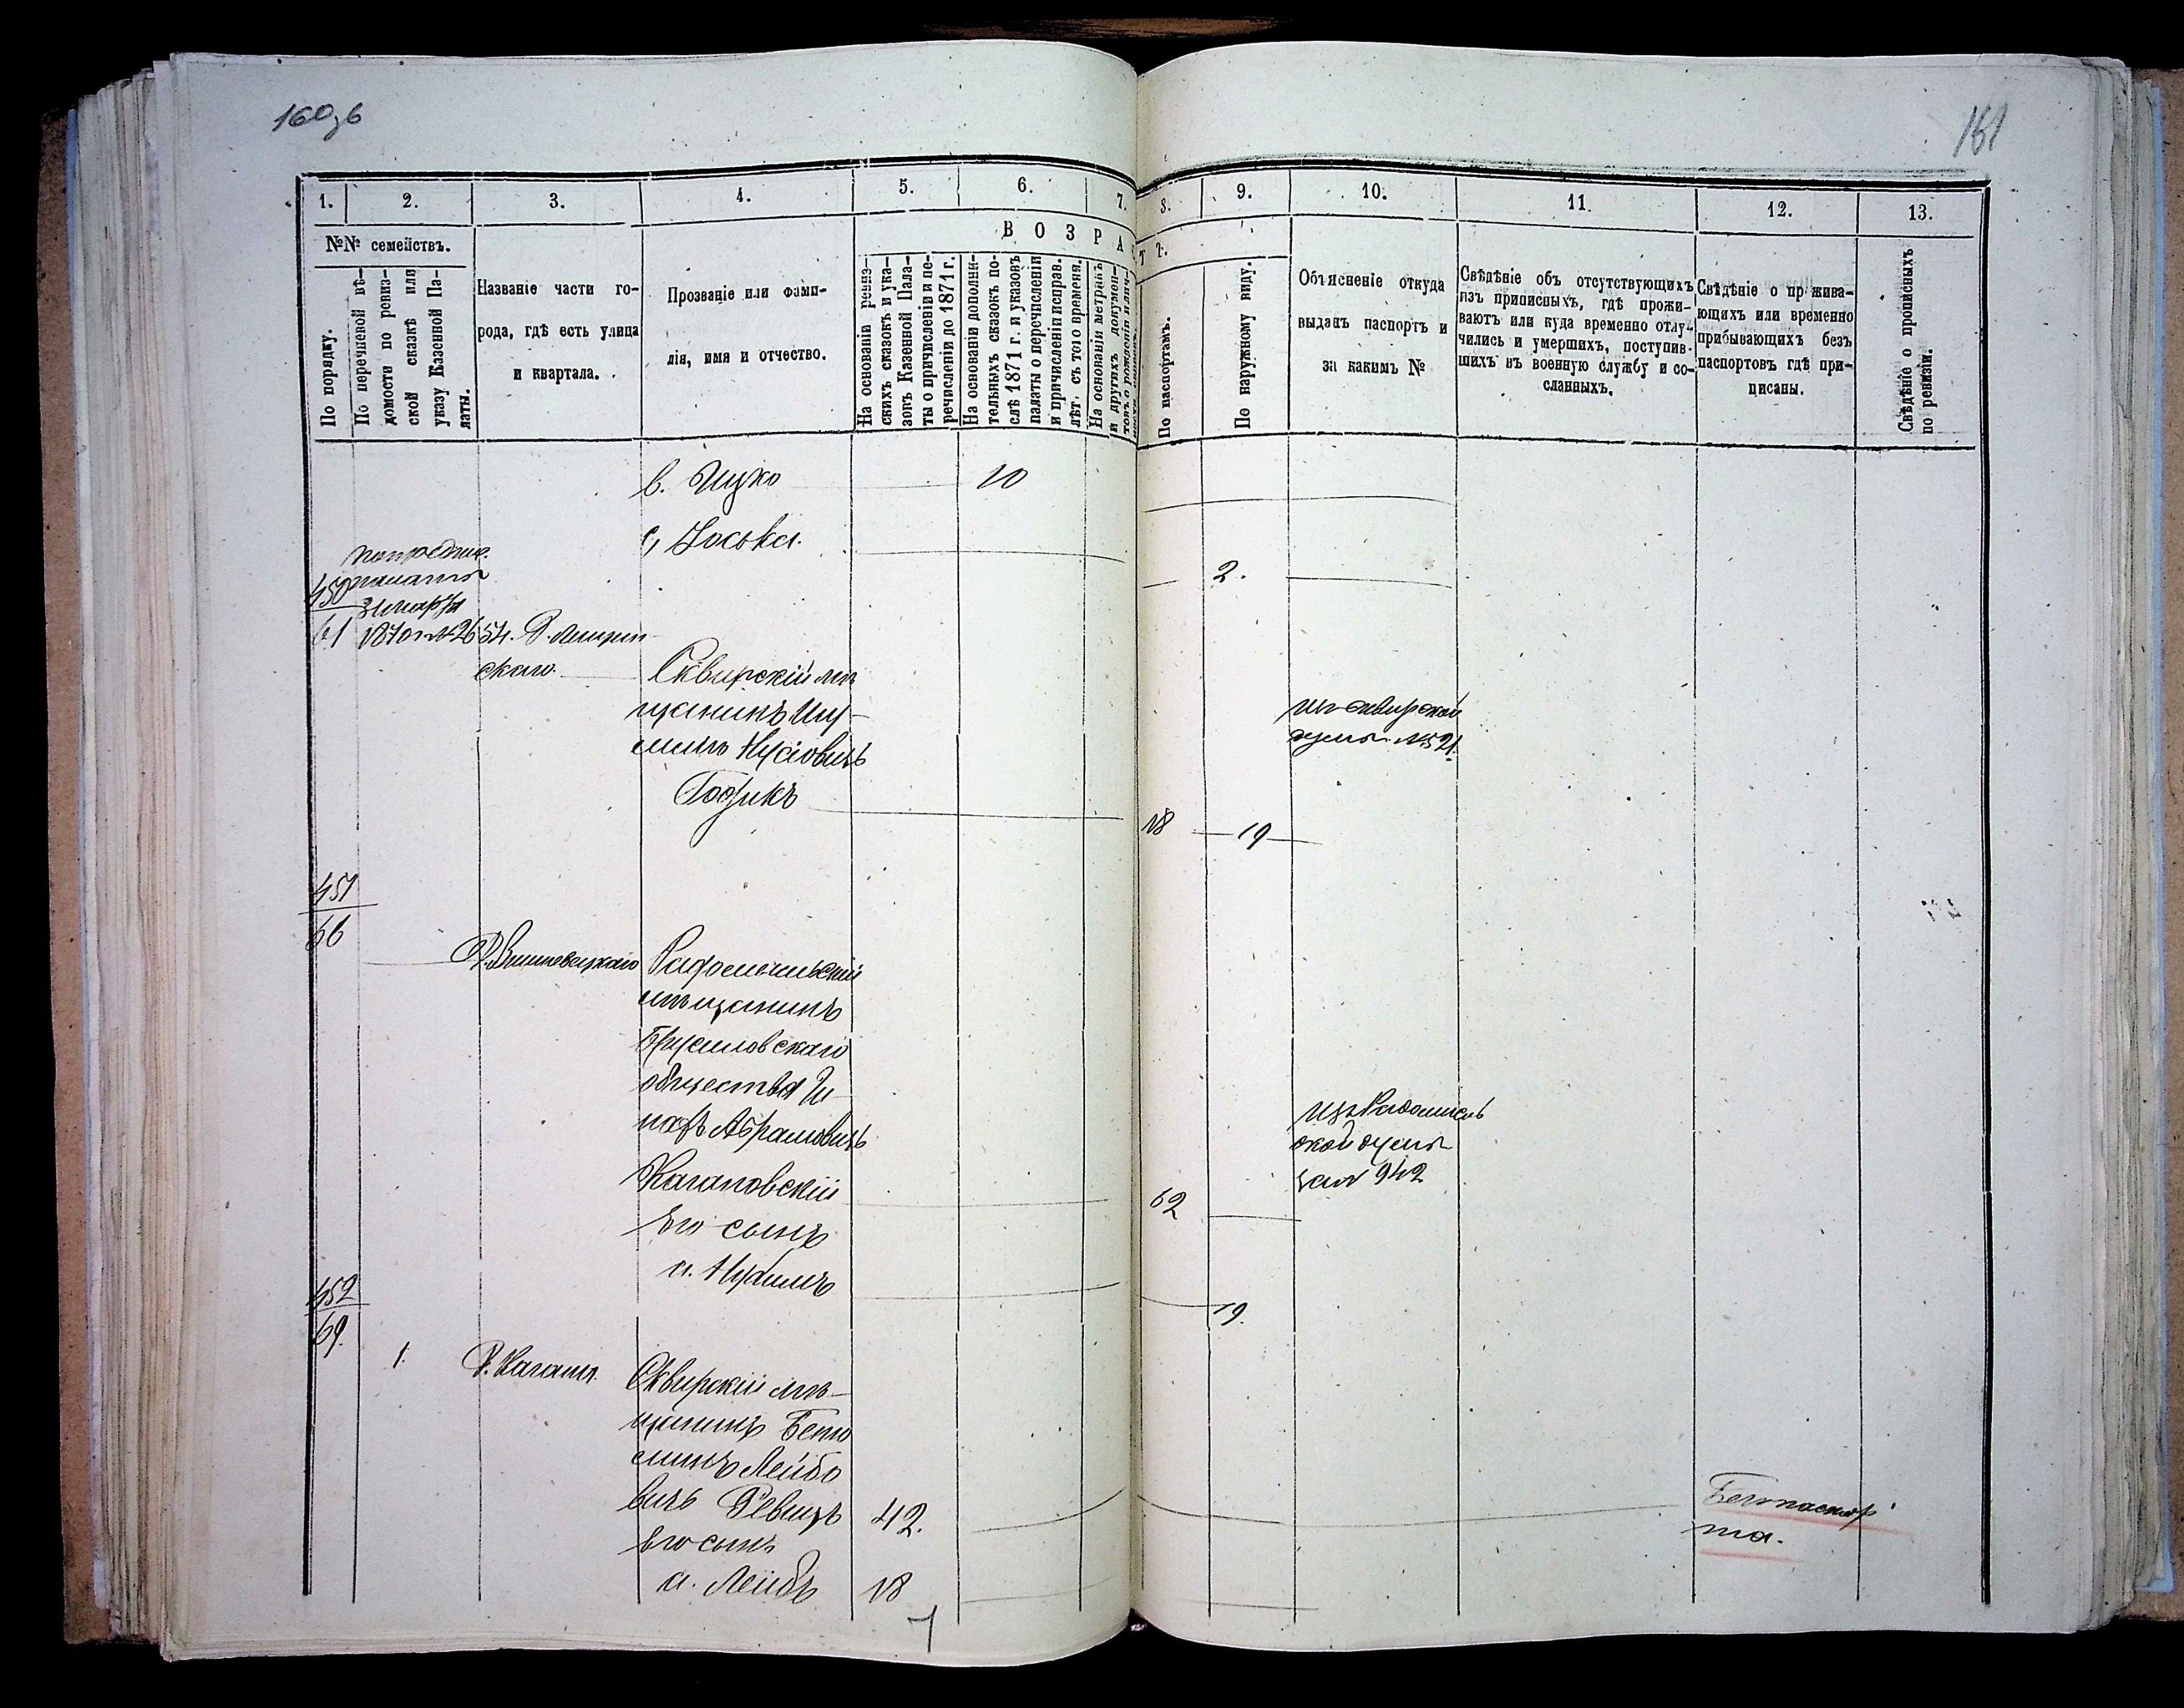 160об
161
1.
2.
3.
4.
5.
6.
7.
8.
9.
10.
11.
12.
13.
№№ семействъ.
По порядку.
По перечневой вѣ-
домости по ревиз-
ской сказкѣ или
указу Казенной Па-
латы.
Названіе части го-
рода, гдѣ есть улица
и квартала.
Прозваніе или фами-
лія, имя и отчество.
ВОЗРА
СТЪ.
На основаніи ревиз-
скихъ сказокъ и ука-
зовъ Казенной Пала-
ты о причисленіи и пе-
речисленіи до 1871 г.
На основаніи дополни-
тельныхъ сказокъ по-
слѣ 1871 г. и указовъ
палаты о перечисленіи
и причисленіи исправ.
лѣт. съ того времени.
На основаніи метрикъ
и другихъ докумен-
товъ о рожденіи и лич-
По паспортамъ.
По наружному виду.
Объясненіе откуда
выданъ паспортъ и
за какимъ №
Свѣдѣніе объ отсутствующихъ
изъ приписныхъ, гдѣ прожи-
ваютъ или куда временно отлу-
чились и умершихъ, поступив-
шихъ въ военную службу и со-
сланныхъ.
Свѣдѣніе о прожива-
ющихъ или временно
прибывающихъ безъ
паспортовъ гдѣ при-
писаны.
Свѣдѣніе о прописныхъ
по ревизіи.
в. Ицко 10
с, Іоська. 2.
450
61
палаты
31 марта
1870 г № 2654. Д. Лищин
скаго
Сквирскій мѣ
щанинъ
Нусіовичъ
18 19
изъ сквирской
думы № 521.
451
66
Д. Вишневецкаго
Радомысльскій
мѣщанинъ
Брусиловскаго
общества Ш
Абрамовичъ
Кагановскій 62
Его сынъ
а. 19.
изъ Радомысль
ской думы
за № 942
452
69.
1.
Д. Кагана.
Сквирскій мѣ-
щанинъ Беню
минъ Лейбо
вичъ Ревицъ 42.
Его сынъ
а. Лейбъ 18
Безъ паспор
та.